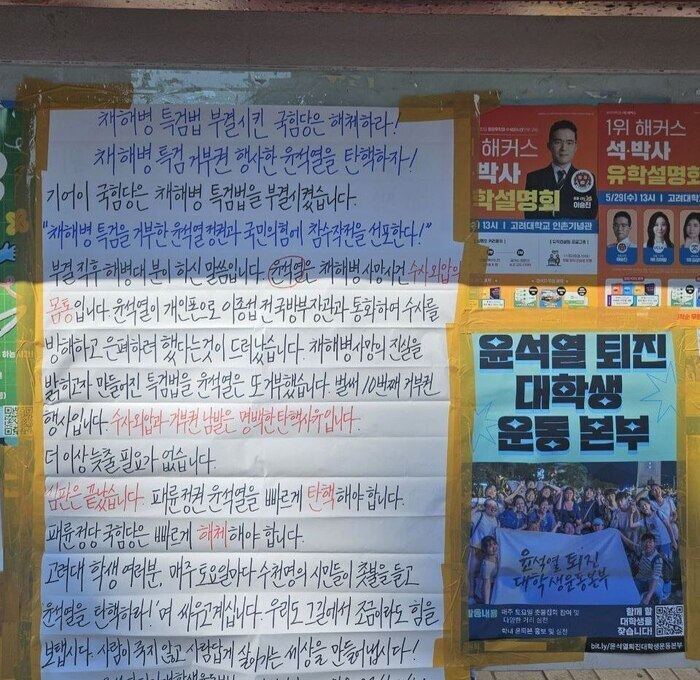 채해병 특검법 부결시킨 국힘당은 해체하라!
채해병 특검 거부권 행사한 윤석열을 탄핵하자!
기어이 국힘당은 채해병 특검법을 부결시켰습니다.
"채해병 특검을 거부한 윤석열 정권과 국민의힘에 참수작전을 선포한다!"
부결 직후 해병대 분이 하신 말씀입니다. 윤석열은 채해병 사망사건 수사외압의
몸통입니다. 윤석열이 개인폰으로 이종섭 전 국방부장관과 통화하여 수사를
방해하고 은폐하려 했다는 것이 드러났습니다. 채해병 사망의 진실을
밝히고자 만들어진 특검법을 윤석열은 또 거부했습니다. 벌써 10번째 거부권
행사입니다. 수사외압과 거부권 남발은 명백한 탄핵사유입니다.
더 이상 늦출 필요가 없습니다.
심판은 끝났습니다. 패륜정권 윤석열을 빠르게 탄핵해야 합니다.
패륜정당 국힘당은 빠르게 해체해야 합니다.
고려대 학생 여러분, 매주 토요일마다 수천명의 시민들이 촛불을 들고
윤석열을 탄핵하라!'며 싸우고계십니다. 우리도 그 길에서 조금이라도 힘을
보탭시다. 사람이 죽지 않고 사람답게 살아가는 세상을 만들어냅시다!
해커스
박사
학설명회
이승진
) 13시 | 고려대학교 인촌기념관
1위 해커스
석·박사
유학설명회
5/29(수) 13시 | 고려대학교
윤석열 퇴진
대학생
운동 본부
윤석열 퇴진
대학생운동본부
활동내용
매주 토요일 촛불집회 참여 및
다양한 거리 실천
학내 윤퇴본 홍보 및 실천
함께 할
대학생을
찾습니다!
bit.ly/윤석열퇴진대학생운동본부